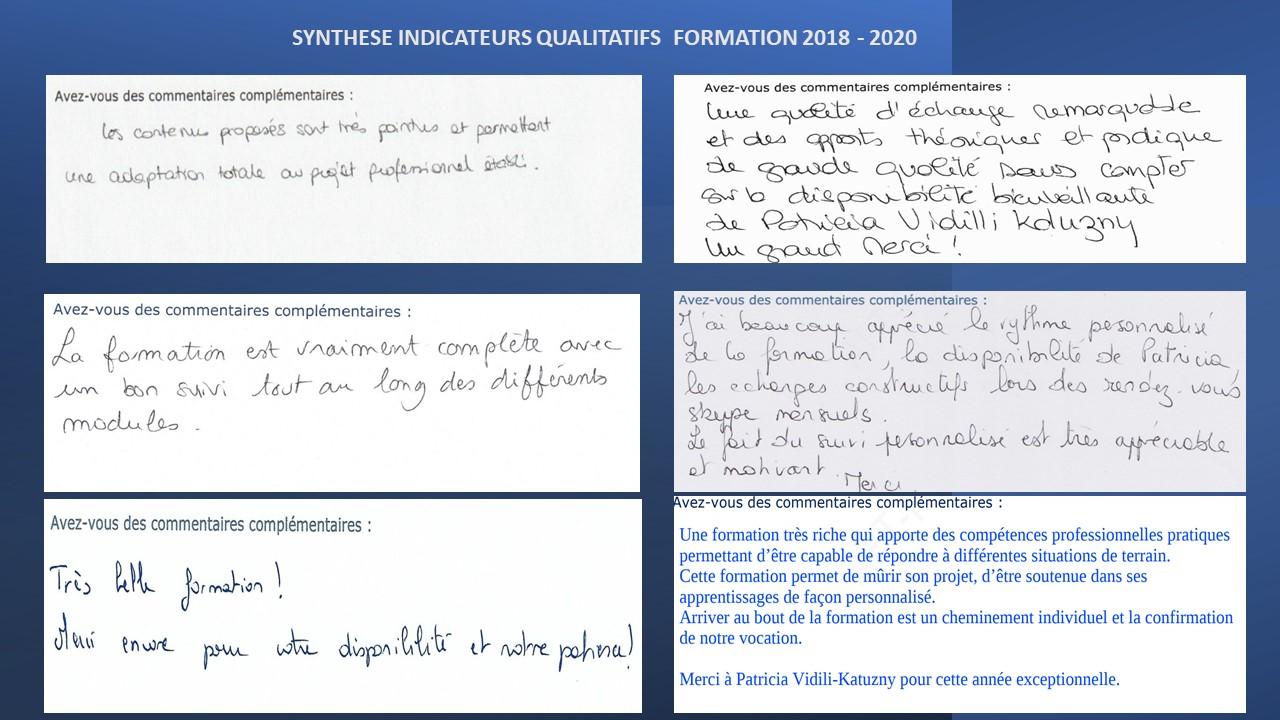 SYNTHESE INDICATEURS QUALITATIFS FORMATION 2018 - 2020
Avez-vous des commentaires complémentaires :
les contenus proposés sont très pointus et permettent
une adaptation totale au projet professionnel établi.
Avez-vous des commentaires complémentaires :
Une qualité d'échange remarquable
et des apports théoriques et pratique
de grande qualité sans compter
sur la disponibilité bienveillante
de Patricia Vidilli Kaluzny
Un grand Merci !
Avez-vous des commentaires complémentaires :
La formation est vraiment complète avec
un bon suivi tout au long des différents
modules.
Avez-vous des commentaires complémentaires :
J'ai beaucoup apprécié le rythme personnalisé
de la formation, la disponibilité de Patricia
les echanges constructifs lors des rendez-vous
skype mensuels.
Le fait du suivi personnalisé est très appréciable
et motivant. Merci
Avez-vous des commentaires complémentaires :
Très belle formation !
Merci encore pour votre disponibilité et votre patience !
Avez-vous des commentaires complémentaires :
Une formation très riche qui apporte des compétences professionnelles pratiques
permettant d'être capable de répondre à différentes situations de terrain.
Cette formation permet de mûrir son projet, d'être soutenue dans ses
apprentissages de façon personnalisé.
Arriver au bout de la formation est un cheminement individuel et la confirmation
de notre vocation.
Merci à Patricia Vidili-Katuzny pour cette année exceptionnelle.